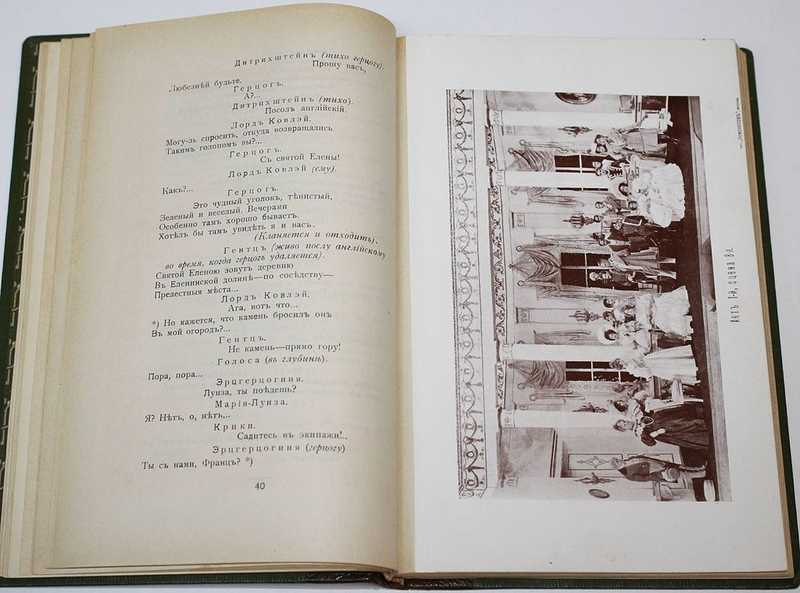 Дитрихштейнъ (тихо герцогу).
Прошу васъ,
Любезнѣй будьте.
Герцогъ.
А?...
Дитрихштейнъ (тихо).
Посолъ англійскій.
Лордъ Ковлэй.
Могу-ль спросить, откуда возвращались
Такимъ голопомъ вы?...
Герцогъ.
Съ святой Елены!
Лордъ Ковлэй (ему).
Какъ?...
Герцогъ.
Это чудный уголокъ, тѣнистый,
Зеленый и веселый. Вечерами
Особенно тамъ хорошо бываетъ.
Хотѣлъ бы тамъ увидѣть я и васъ.
(Кланяется и отходитъ).
Гентцъ (живо послу англійскому
во время, когда герцогъ удаляется).
Святой Еленою зовутъ деревню
Въ Еленинской долинѣ—по сосѣдству—
Прелестныя мѣста...
Лордъ Ковлэй.
Ага, вотъ что...
*) Но кажется, что камень бросилъ онъ
Въ мой огородъ?...
Гентцъ.
Не камень—прямо гору!
Голоса (въ глубинѣ).
Пора, пора...
Эрцгерцогиня.
Луиза, ты поѣдешь?
Марія-Луиза.
Я? Нѣтъ, о, нѣтъ...
Крики.
Садитесь въ экипажи!..
Эрцгерцогиня (герцогу)
Ты съ нами, Францъ? *)
40
Актъ 1-й, сцена 8-я.